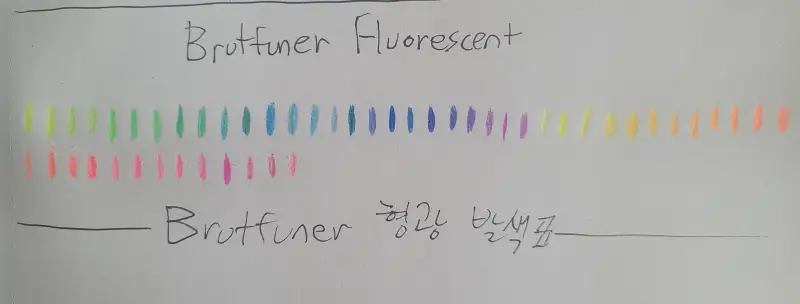 Brutfuner Fluorescent
Brutfuner 형광 발색표